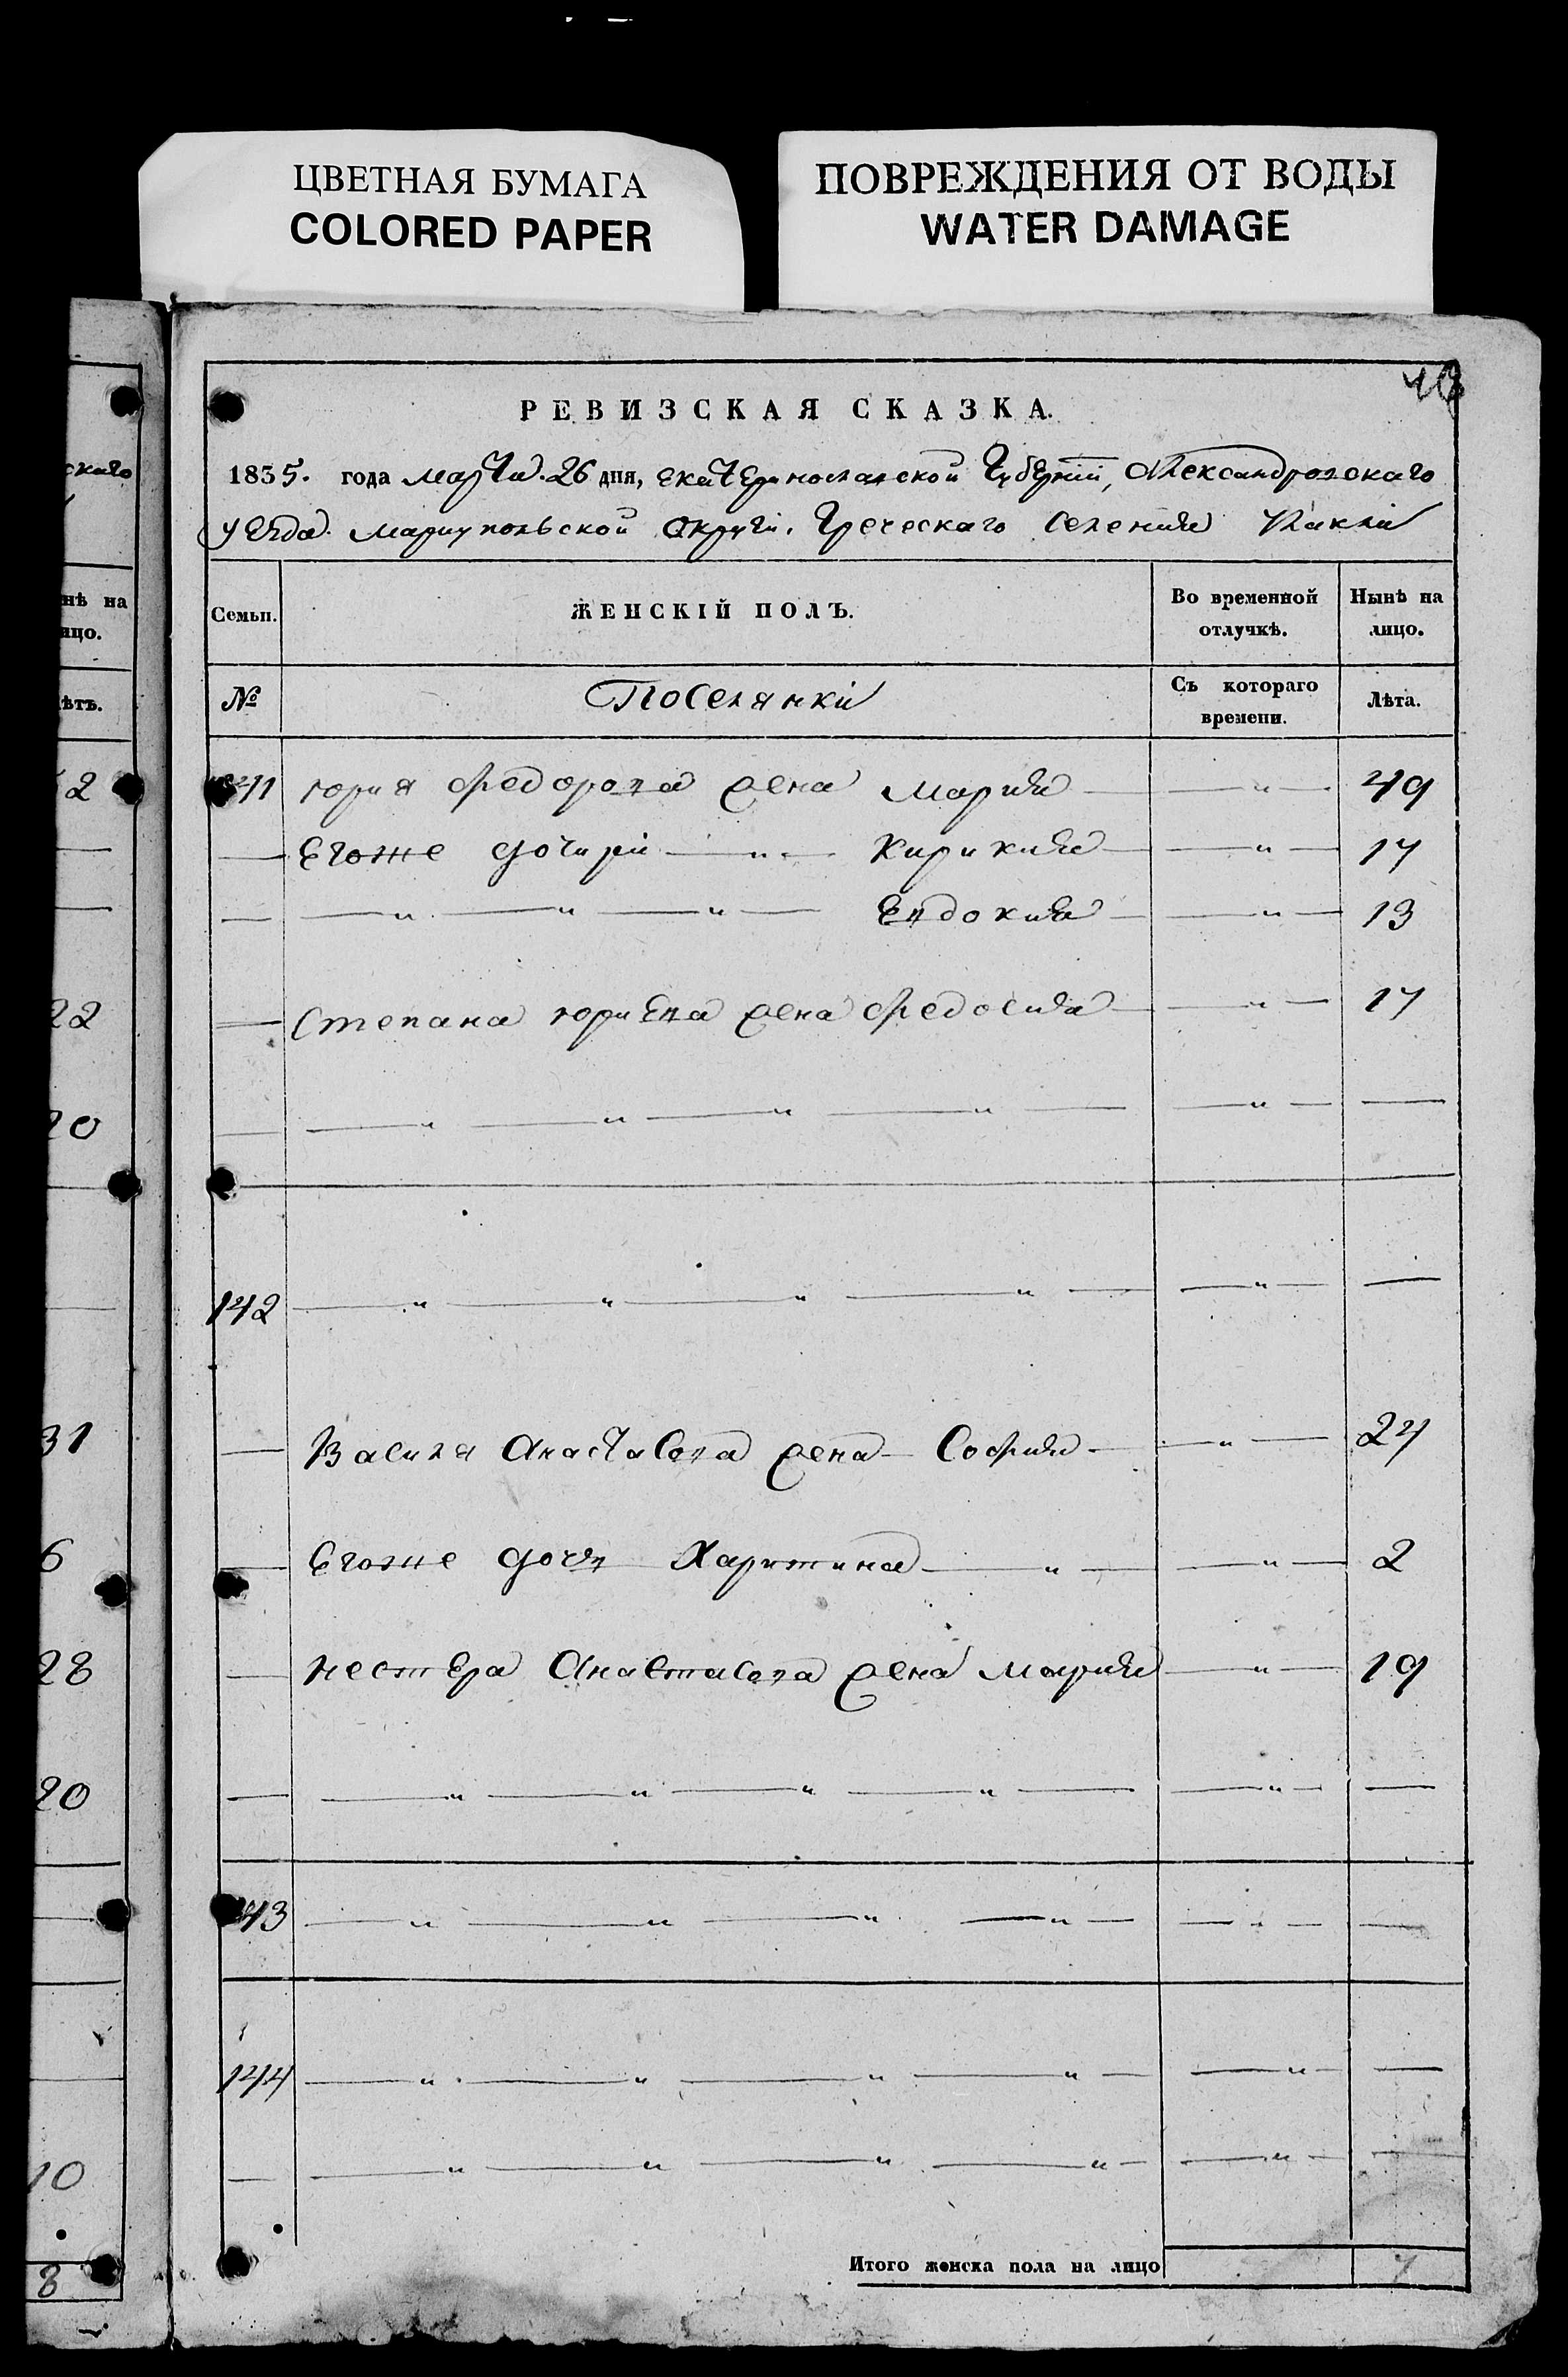 ЦВЕТНАЯ БУМАГА
COLORED PAPER
ПОВРЕЖДЕНИЯ ОТ ВОДЫ
WATER DAMAGE
РЕВИЗСКАЯ СКАЗКА.
1835. года марта 26 дня, екатеринославской Губернiи, Александровскаго
уезда Мариупольской округи. Греческаго Селения
Семьи. ЖЕНСКIЙ ПОЛЪ. Во временной отлучкѣ. Нынѣ на лицо.
№ Поселянки Съ котораго времени. Лѣта.
141 юрия федорова жена мария — " — 49
— Егоже дочири — " — Кирикия — " — 17
— — " — " — " — Евдокия — " — 13
— Степана юриева жена федосия — " — 17
— — " — " — " — — " — —
142 — " — " — " — " — — " — —
— Василя Анастасова жена — София — — " — 24
— Егоже дочь Харитина — " — — " — 2
— нестера Анастасова жена мария — " — 19
— — " — " — " — " — — " — —
143 — " — " — " — " — — " — —
144 — " — " — " — " — — " — —
— — " — " — " — " — — " — —
Итого женска пола на лицо 7
скаго
нѣ на
ицо.
ѣтъ.
2
22
20
31
6
28
20
10
8